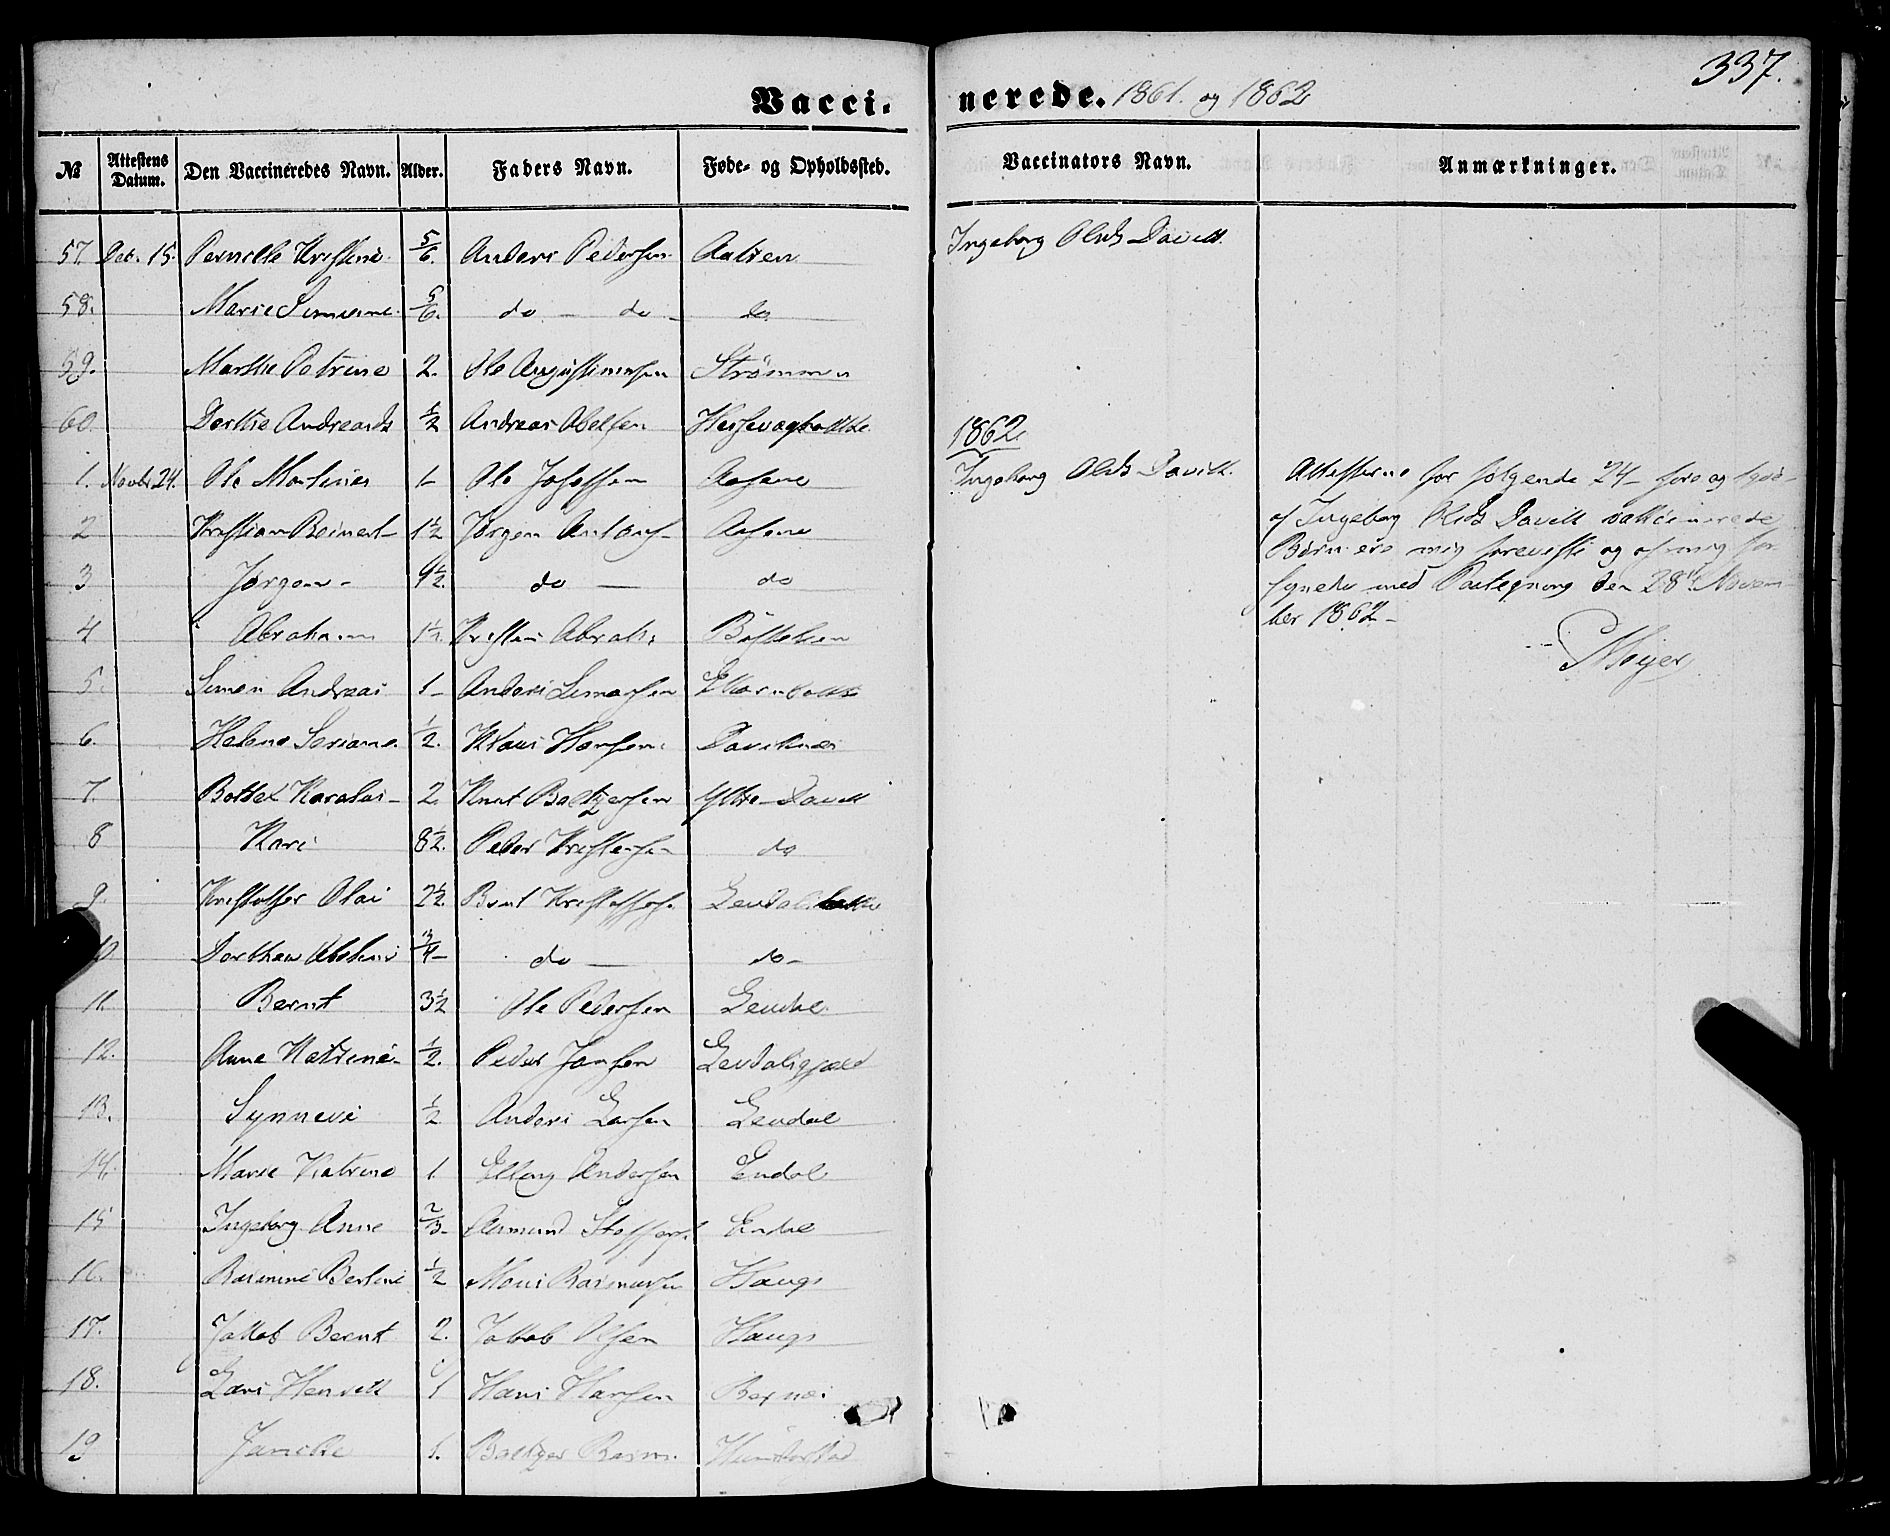 337.
Vacci- nerede. 1861. og 1862
№ Attestens Datum. Den Vaccineredes Navn. Alder. Faders Navn. Føde- og Opholdssted. Vaccinators Navn. Anmærkninger.
57. Dec. 15. Pernille Kristine 5/6. Anders Pedersen Aalien Ingeborg Olsd. Davik
58. Marie 5/6. do - do - do
59. Marthe Petrine 2. Ole Augustinusen Strömmen
60. Dorthe Andreasd. 1/2 Andreas Abelsen
1862
1. Novbr 24. Ole Martines 1- Ole Josefsen Aasene Ingeborg Olsd. Davik. Attesterne for følgende 24- fire og tyve-
2 Kristian Reinert- 1 1/2 Jørgen Antons- Aasene af Ingeborg Olsd. Davik vakcinerede
3 Jørgen- 4 1/2. do - do Børn ere mig foreviste og af mig for-
synede med Paategning den 28de Novem-
4 Abraham 1 1/2. Kristen Abrah: ber 1862-
Meyer
5. Simon Andreas 1- Anders Simonsen
6. Helene Seriane. 1/2. Klaus Hansen Daviknes
7. Bottel Karolus- 2. Knut Baltzersen Ytre-Davik
8 Kari 8 1/2. Peder Kristensen do
9. Kristoffer Olai 2 1/2. Bernt Kristoffers. Levdal
10 Dorthea 3/4- do - do-
11. Bernt 3 1/2 Ole Pedersen Levdal
12. Anne Katrine- 1/2. Peder Jonsen
13. Synneve 1/2 Anders Larsen Levdal
14. Marie Katrine 1 Elling Andersen Endal
15 Ingeborg Anne 2/3- Aamund Endal
16. Rasmine Bertine 1/2 Mons Rasmussen Haugs
17. Jakob Bernt 2. Jakob Olsen Haugs
18. Lars Henrik 1 Hans Hansen
19 Janikke 1. Baltzer Rasm.